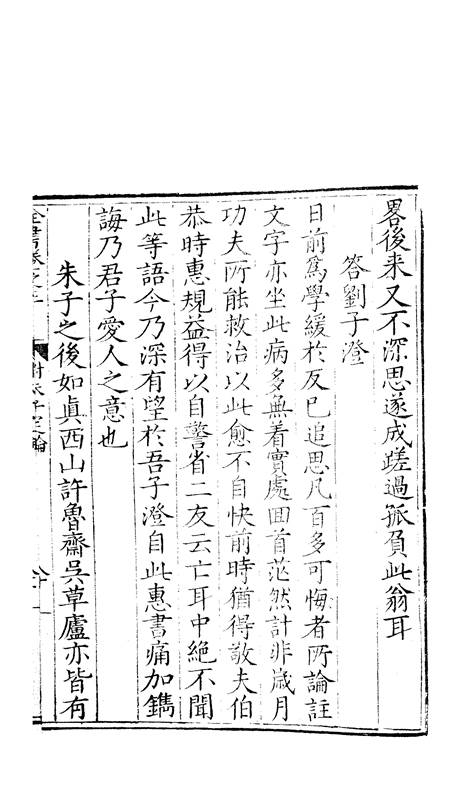 畧後来又不深思遂成蹉過孤負此翁耳
答劉子澄
日前爲學緩於反已追思凡百多可悔者所論註
文字亦坐此病多無着實處回首茫然計非歲月
功夫所能救治以此愈不自快前時猶得敬夫伯
恭時惠規益得以自警省二友云亡耳中絶不聞
此等語今乃深有望於吾子澄自此惠書痛加鐫
誨乃君子愛人之意也
朱子之後如眞西山許魯齋吳草廬亦皆有